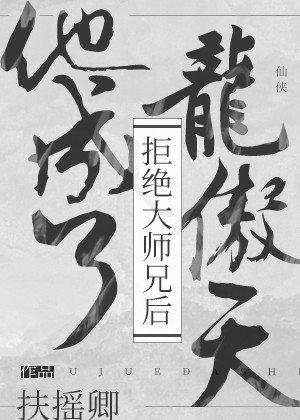 拒绝大师兄后
他成了
龍傲天
仙侠
UJUEDASHI
作品
扶摇卿